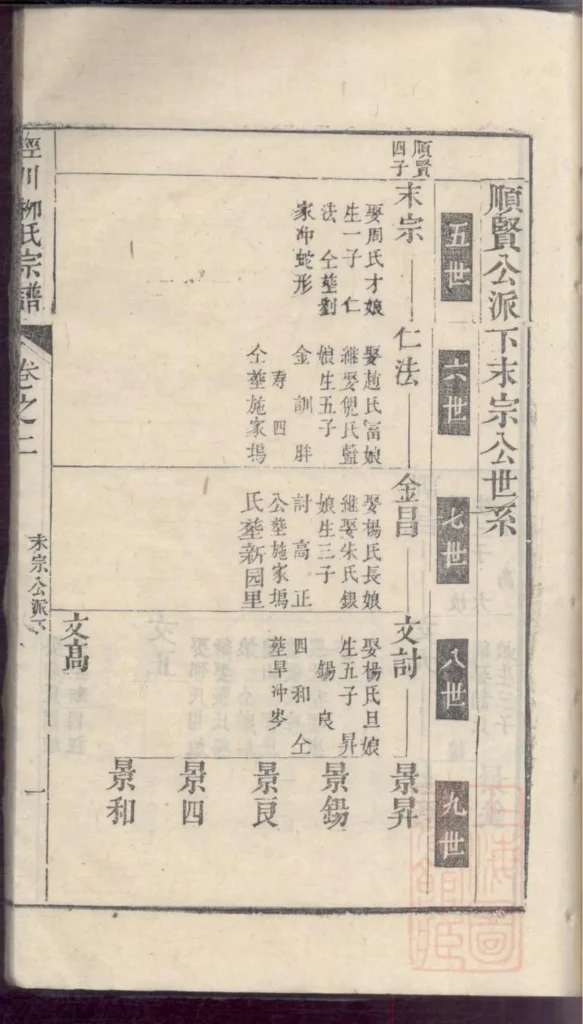 順賢公派下末宗公世系
五世
六世
七世
八世
九世
順賢
四子
末宗
娶周氏才娘
生一子 仁
法 仝塟劉
家冲蛇形
仁法
娶趙氏富娘
繼娶倪氏藍
娘生五子
金 訓 胖
寿 四
仝塟施家塢
金昌
娶楊氏長娘
繼娶朱氏銀
娘生三子
討 高 正
公塟施家塢
氏塟新园里
文討
娶楊氏旦娘
生五子 昇
錫 良
四 和 仝
塟旱冲岑
文高
景昇
景錫
景良
景四
景和
涇川柳氏宗譜
卷之二
末宗公派下
一